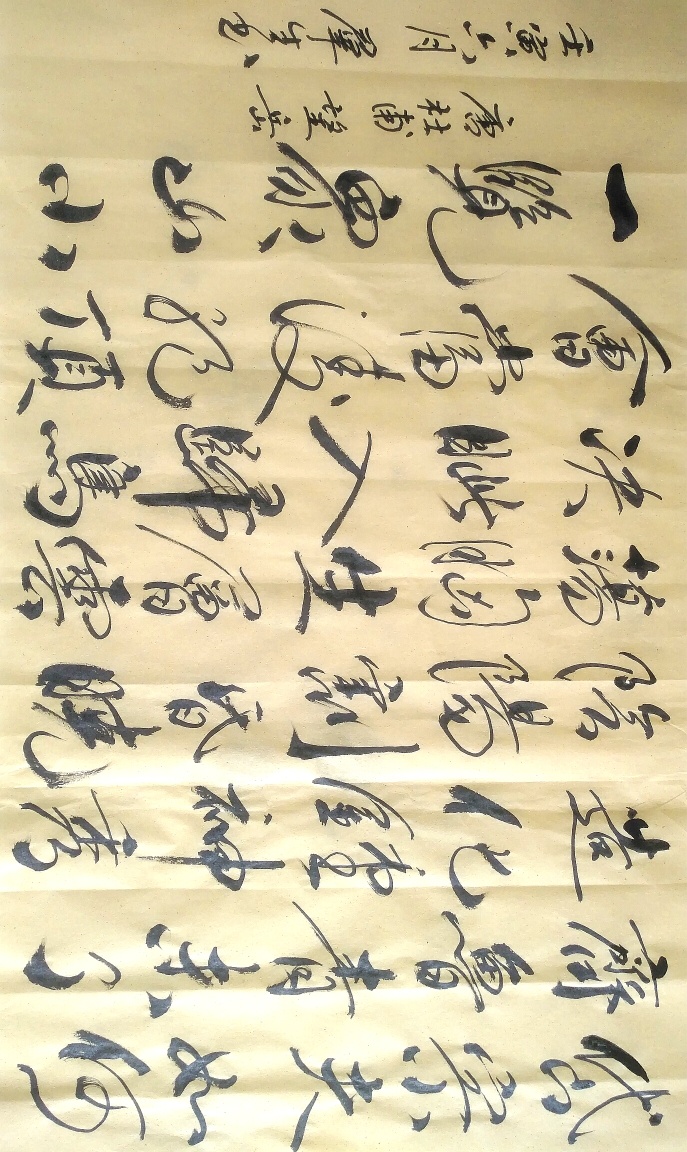 岱宗夫如何
齊魯青未了
造化鍾神秀
陰陽割昏曉
蕩胸生層雲
決眦入歸鳥
會當凌絕頂
一覽眾山小
唐杜甫望岳
壬寅六月生书